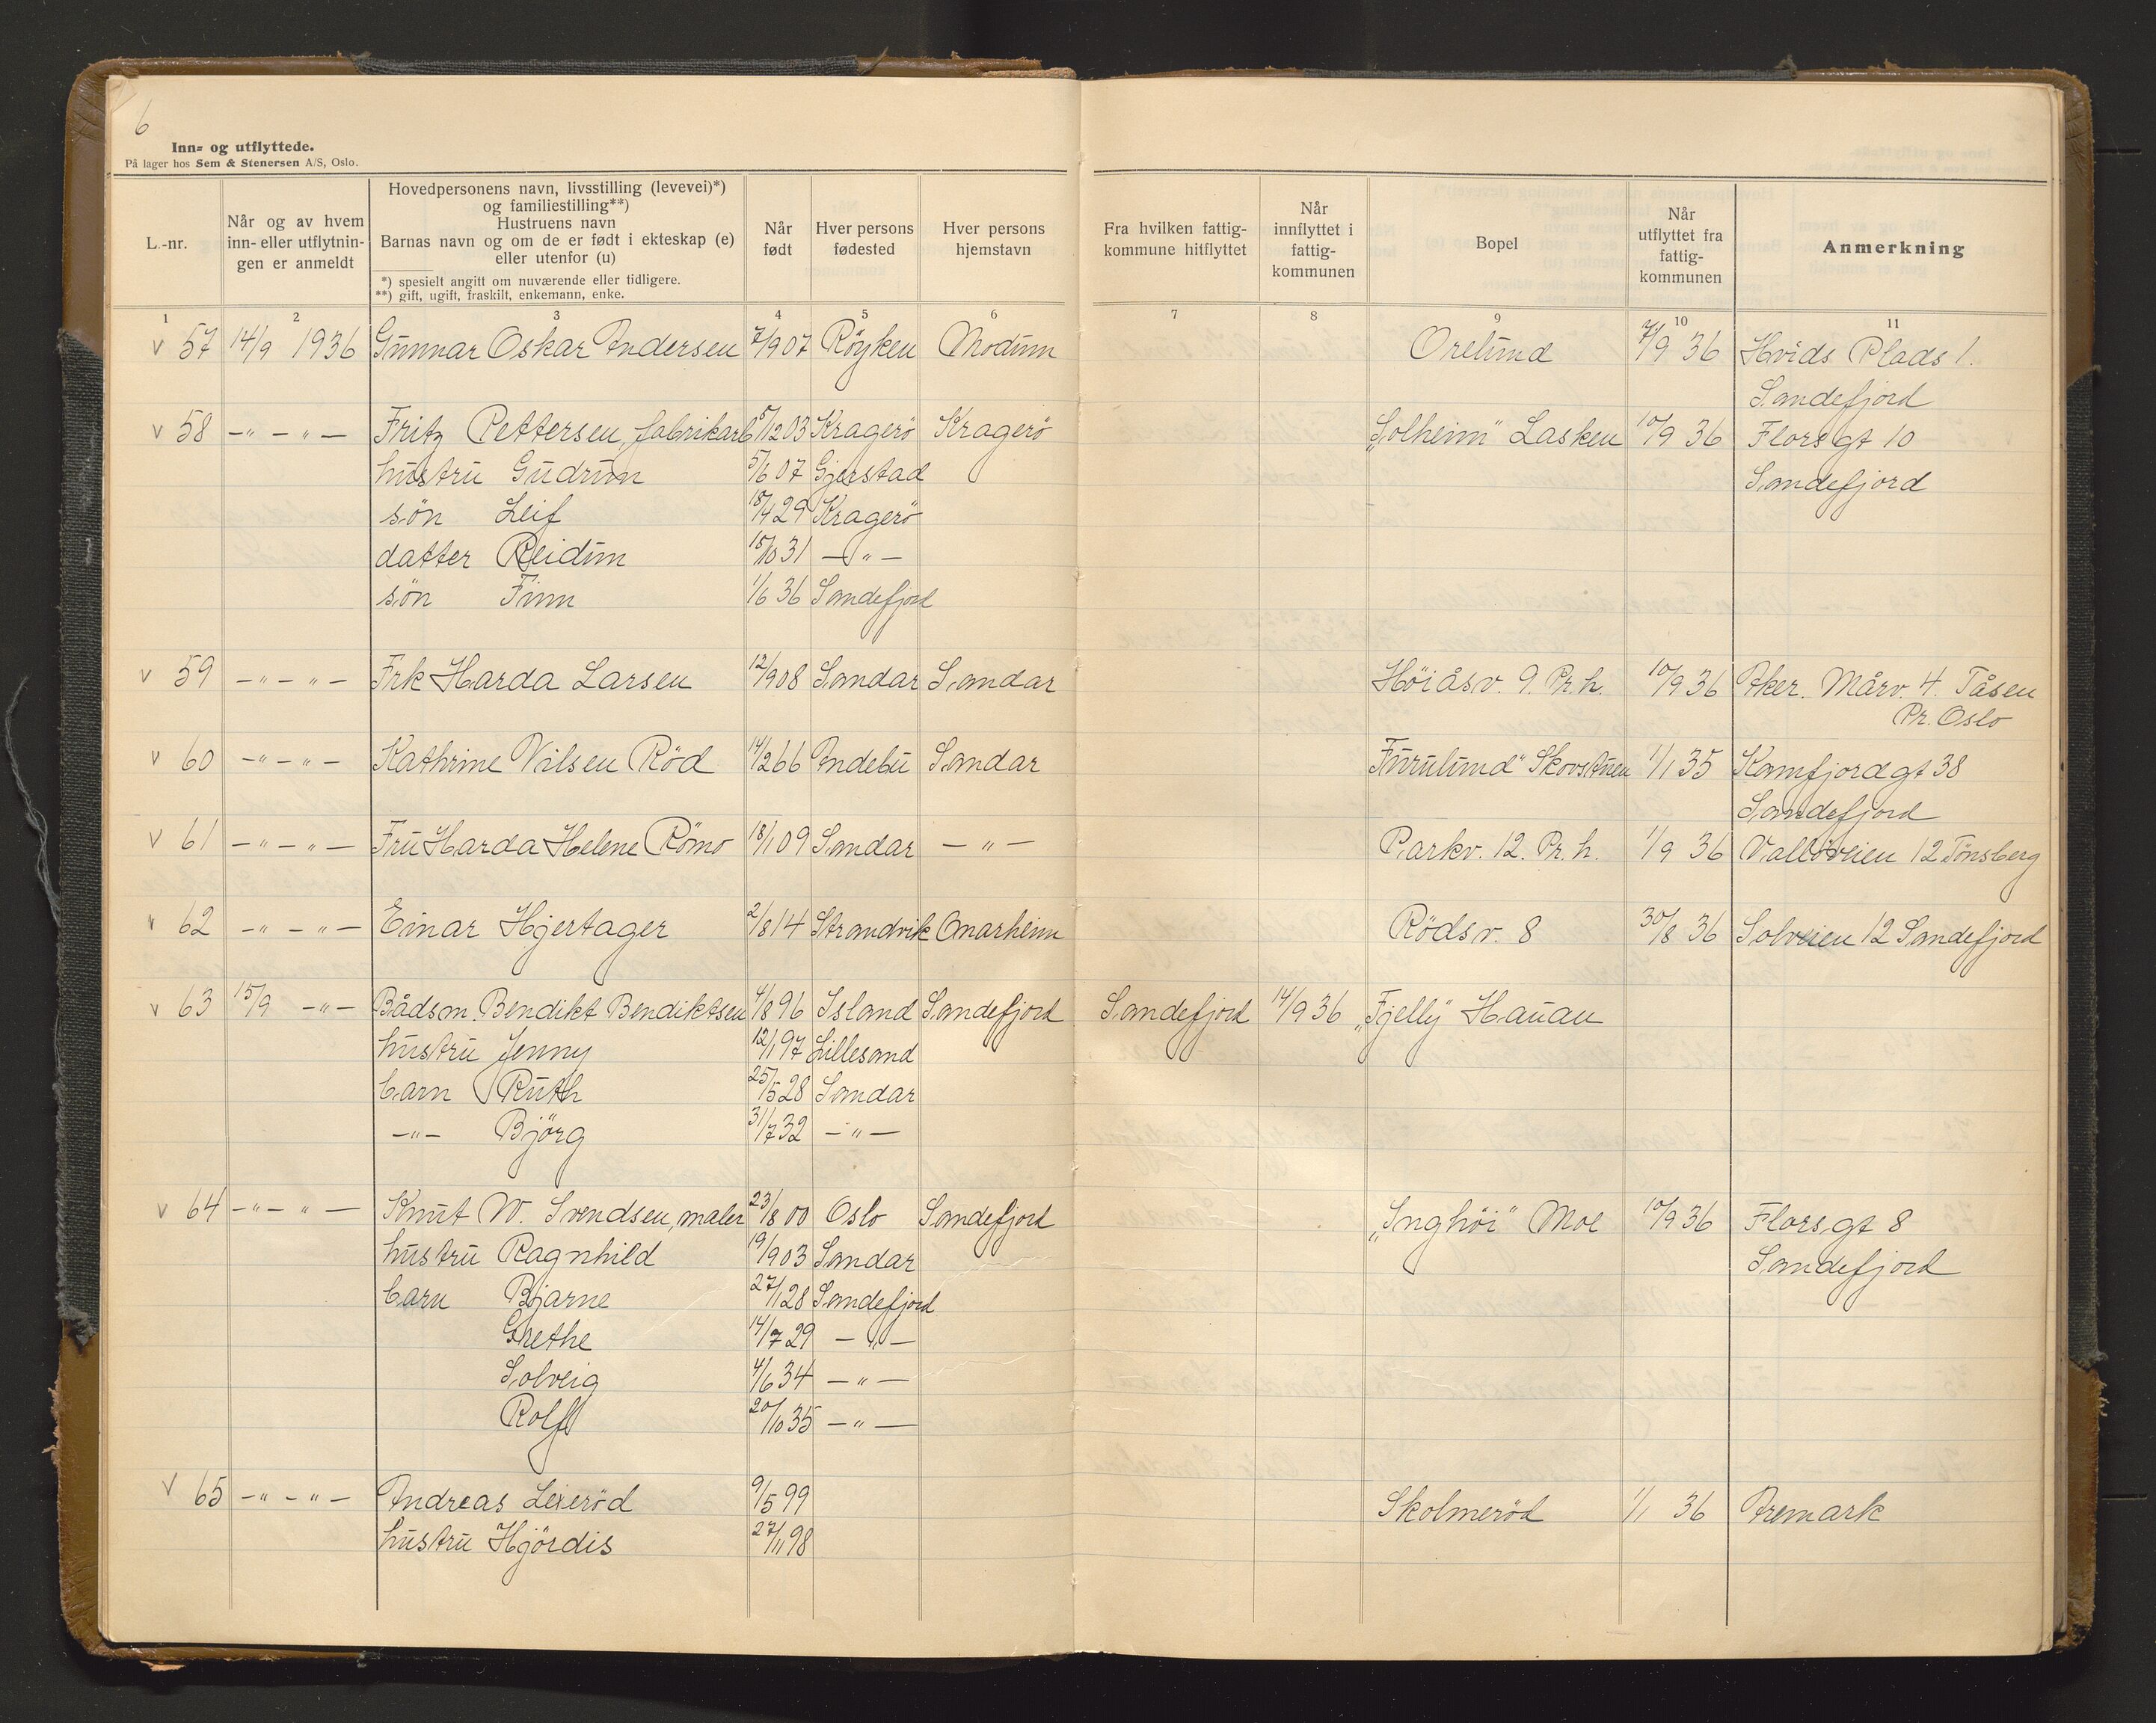 6
Inn- og utflyttede.
På lager hos Sem & Stenersen A/S, Oslo.
L.-nr.
Når og av hvem inn- eller utflytnin-gen er anmeldt
Hovedpersonens navn, livsstilling (levevei)*) og familiestilling**) Hustruens navn Barnas navn og om de er født i ekteskap (e) eller utenfor (u)
*) spesielt angitt om nuværende eller tidligere.
**) gift, ugift, fraskilt, enkemann, enke.
Når født
Hver persons fødested
Hver persons hjemstavn
Fra hvilken fattig-kommune hitflyttet
Når innflyttet i fattig-kommunen
Bopel
Når utflyttet fra fattig-kommunen
Anmerkning
1 2 3 4 5 6 7 8 9 10 11
v 57 14/9 1936 Gunnar Oskar Andersen 7/9 07 Röyken Modum Orelund 7/9 36 Hvids Plads 1.
Sandefjord
v 58 -"- -"- Fritz Pettersen, fabrikarb 5/12 03 Kragerö Kragerö "Solheim" Lasken 10/9 36 Flors gt 10
hustru Gudrun 5/6 07 Gjerstad Sandefjord
sön Leif 18/4 29 Kragerö
datter Reidun 15/10 31 -"-
sön Finn 1/6 36 Sandefjord
v 59 -"- -"- Frk Harda Larsen 12/9 08 Sandar Sandar Höiåsv. 9. Pr. h. 10/9 36 Aker. Mårv. 4. Tåsen
Pr. Oslo
v 60 -"- -"- Kathrine Nilsen Röd 14/2 66 Andebu Sandar Furulund" Skovstuen 1/1 35 Kamfjordgt 38
Sandefjord
v 61 -"- -"- Fru Harda Helene Römo 18/1 09 Sandar -"- Parkv. 12. Pr. h. 1/9 36 Vallöveien 12 Tönsberg
v 62 -"- -"- Einar Hjertager 2/8 14 Strandvik Onarheim Rödsv. 8 30/8 36 Solveien 12 Sandefjord
v 63 15/9 -"- Bådsm. Bendikt Bendiktsen 4/8 96 Island Sandefjord Sandefjord 14/9 36 "Fjelly" Hauan
hustru Jenny 12/1 97 Lillesand
barn Ruth 25/5 28 Sandar
-"- Björg 31/7 32 -"-
v 64 -"- -"- Knut W. Svendsen, maler 23/8 00 Oslo Sandefjord "Inghöi" Moe 10/9 36 Flors gt 8
hustru Ragnhild 19/9 03 Sandar Sandefjord
barn Bjarne 27/1 28 Sandefjord
Grethe 14/7 29 -"-
Solveig 4/6 34 -"-
Rolf 20/10 35 -"-
v 65 -"- -"- Andreas Lexeröd 9/5 99 Skolmeröd 1/1 36 Aremark
hustru Hjördis 27/11 98